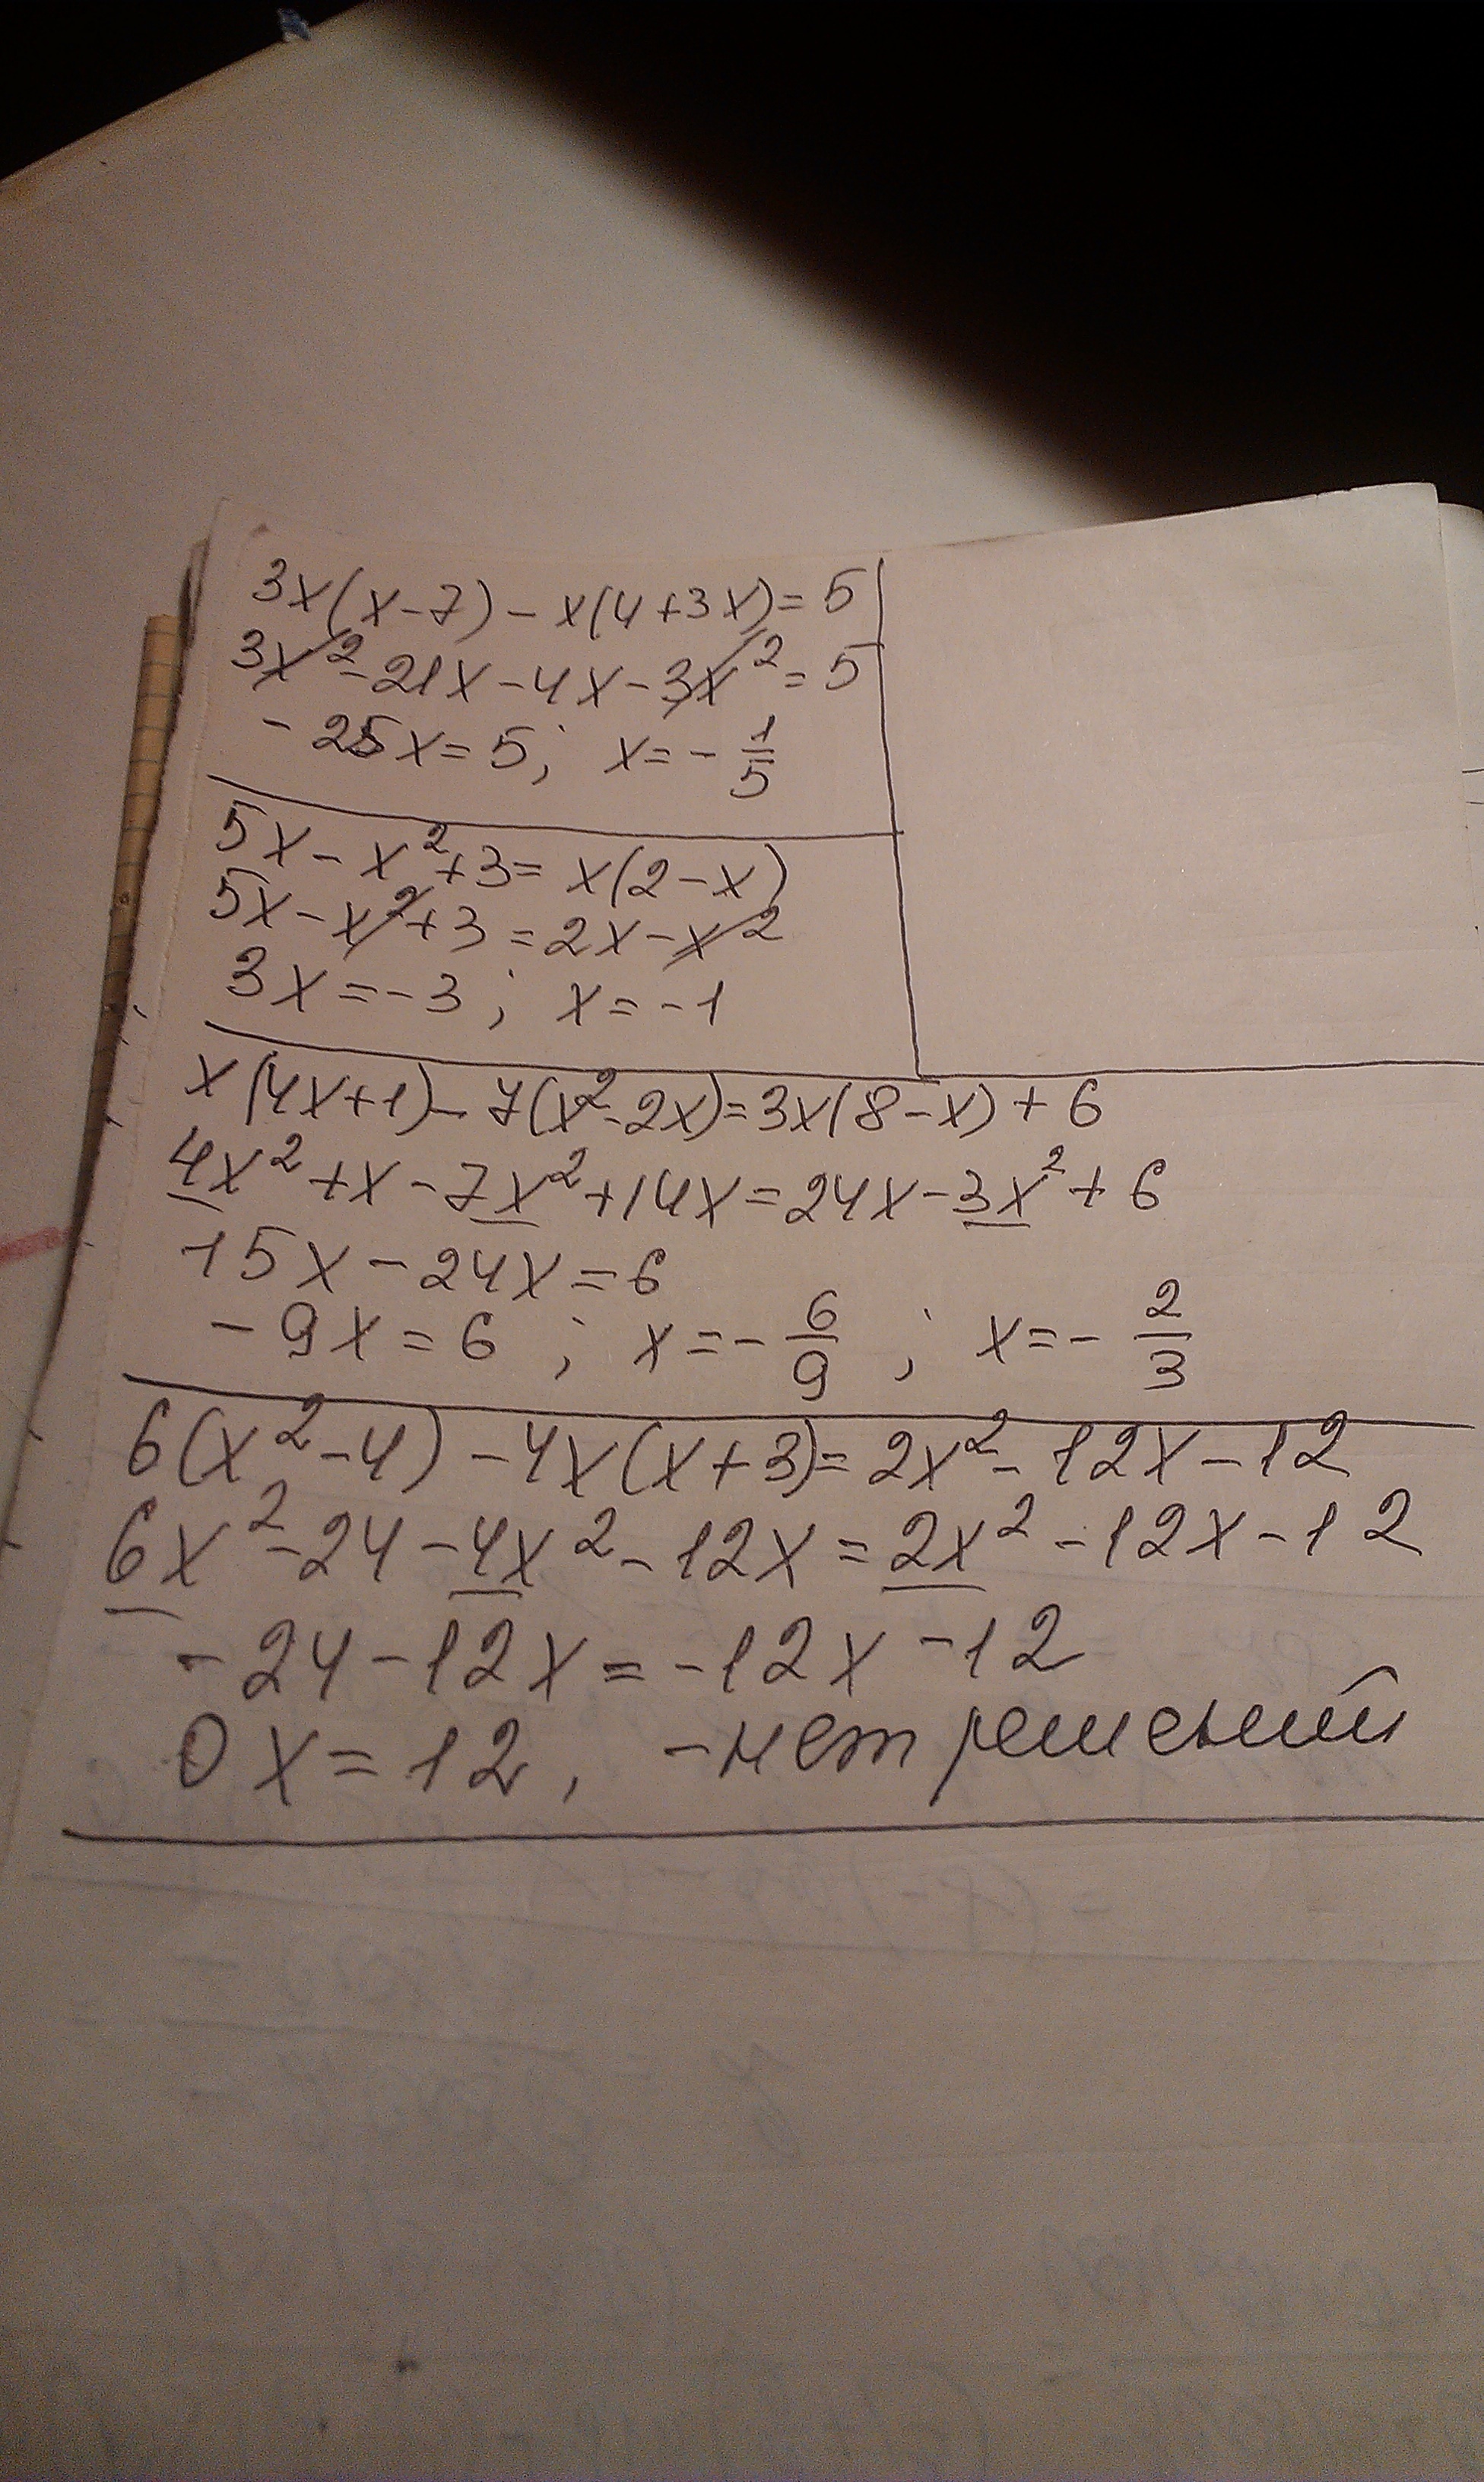 3x(x-7)-x(4+3x)=5
3x²-21x-4x-3x²=5
-25x=5; x=-1/5
5x-x²+3=x(2-x)
5x-x²+3=2x-x²
3x=-3; x=-1
x(4x+1)-7(x²-2x)=3x(8-x)+6
4x²+x-7x²+14x=24x-3x²+6
15x-24x=6
-9x=6; x=-6/9; x=-2/3
6(x²-4)-4x(x+3)=2x²-12x-12
6x²-24-4x²-12x=2x²-12x-12
-24-12x=-12x-12
0x=12, -нет решений